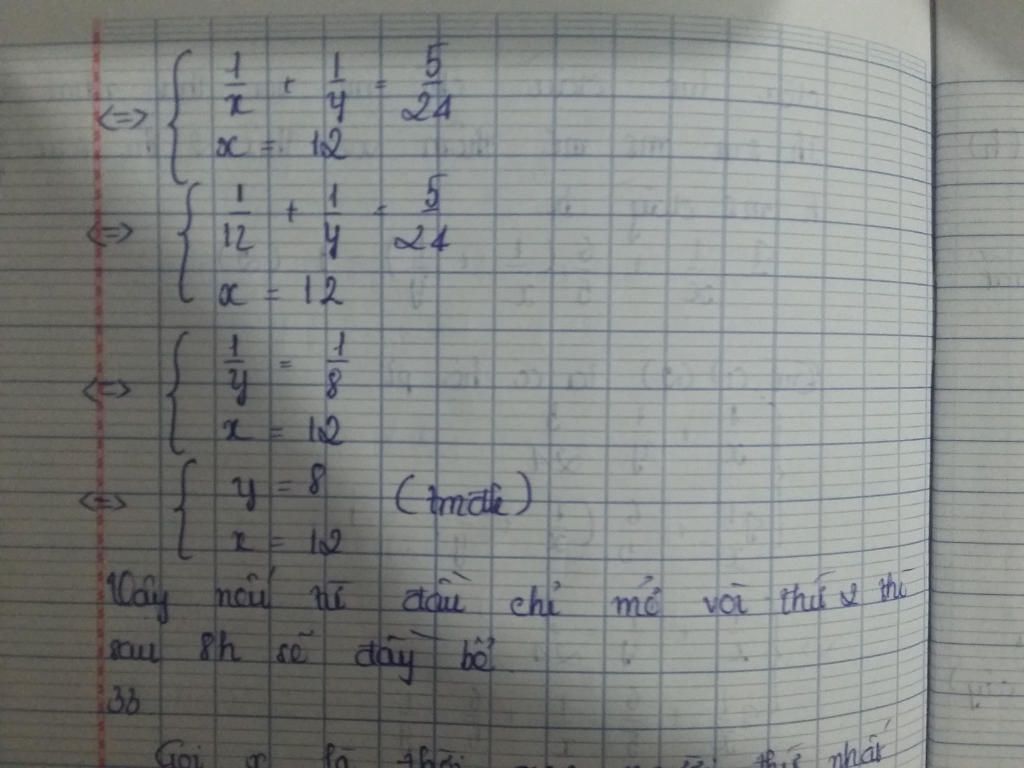 <=> { 1/x + 1/y = 5/24
x = 12
<=> { 1/12 + 1/y = 5/24
x = 12
<=> { 1/y = 1/8
x = 12
<=> { y = 8 (tmđk)
x = 12
Vậy nếu từ đầu chỉ mở vòi thứ 2 thì
sau 8h sẽ đầy bể
38
Gọi x là thời thứ nhất